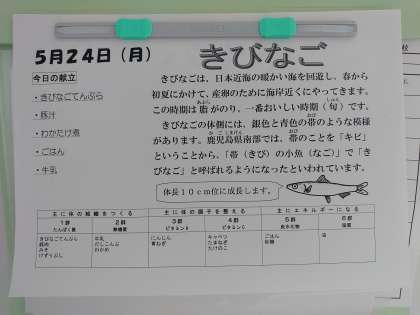 5月24日（月）
きびなご
今日の献立
・きびなごてんぷら
・豚汁
・わかたけ煮
・ごはん
・牛乳
きびなごは、日本近海の暖かい海を回遊し、春から
初夏にかけて、産卵のために海岸近くにやってきます。
この時期は脂がのり、一番おいしい時期（旬）です。
きびなごの体側には、銀色と青色の帯のような模様
があります。鹿児島県南部では、帯のことを「キビ」
ということから、「帯（きび）の小魚（なご）」で「き
びなご」と呼ばれるようになったといわれています。
体長10cm位に成長します。
主に体の組織をつくる 主に体の調子を整える 主にエネルギーになる
1群 2群 3群 4群 5群 6群
たんぱく質 無機質 ビタミンA ビタミンC 炭水化物 脂質
きびなごてんぷら 牛乳 にんじん キャベツ ごはん 油
豚肉 だしこんぶ 青ねぎ たまねぎ 砂糖
みそ わかめ たけのこ
けずりぶし